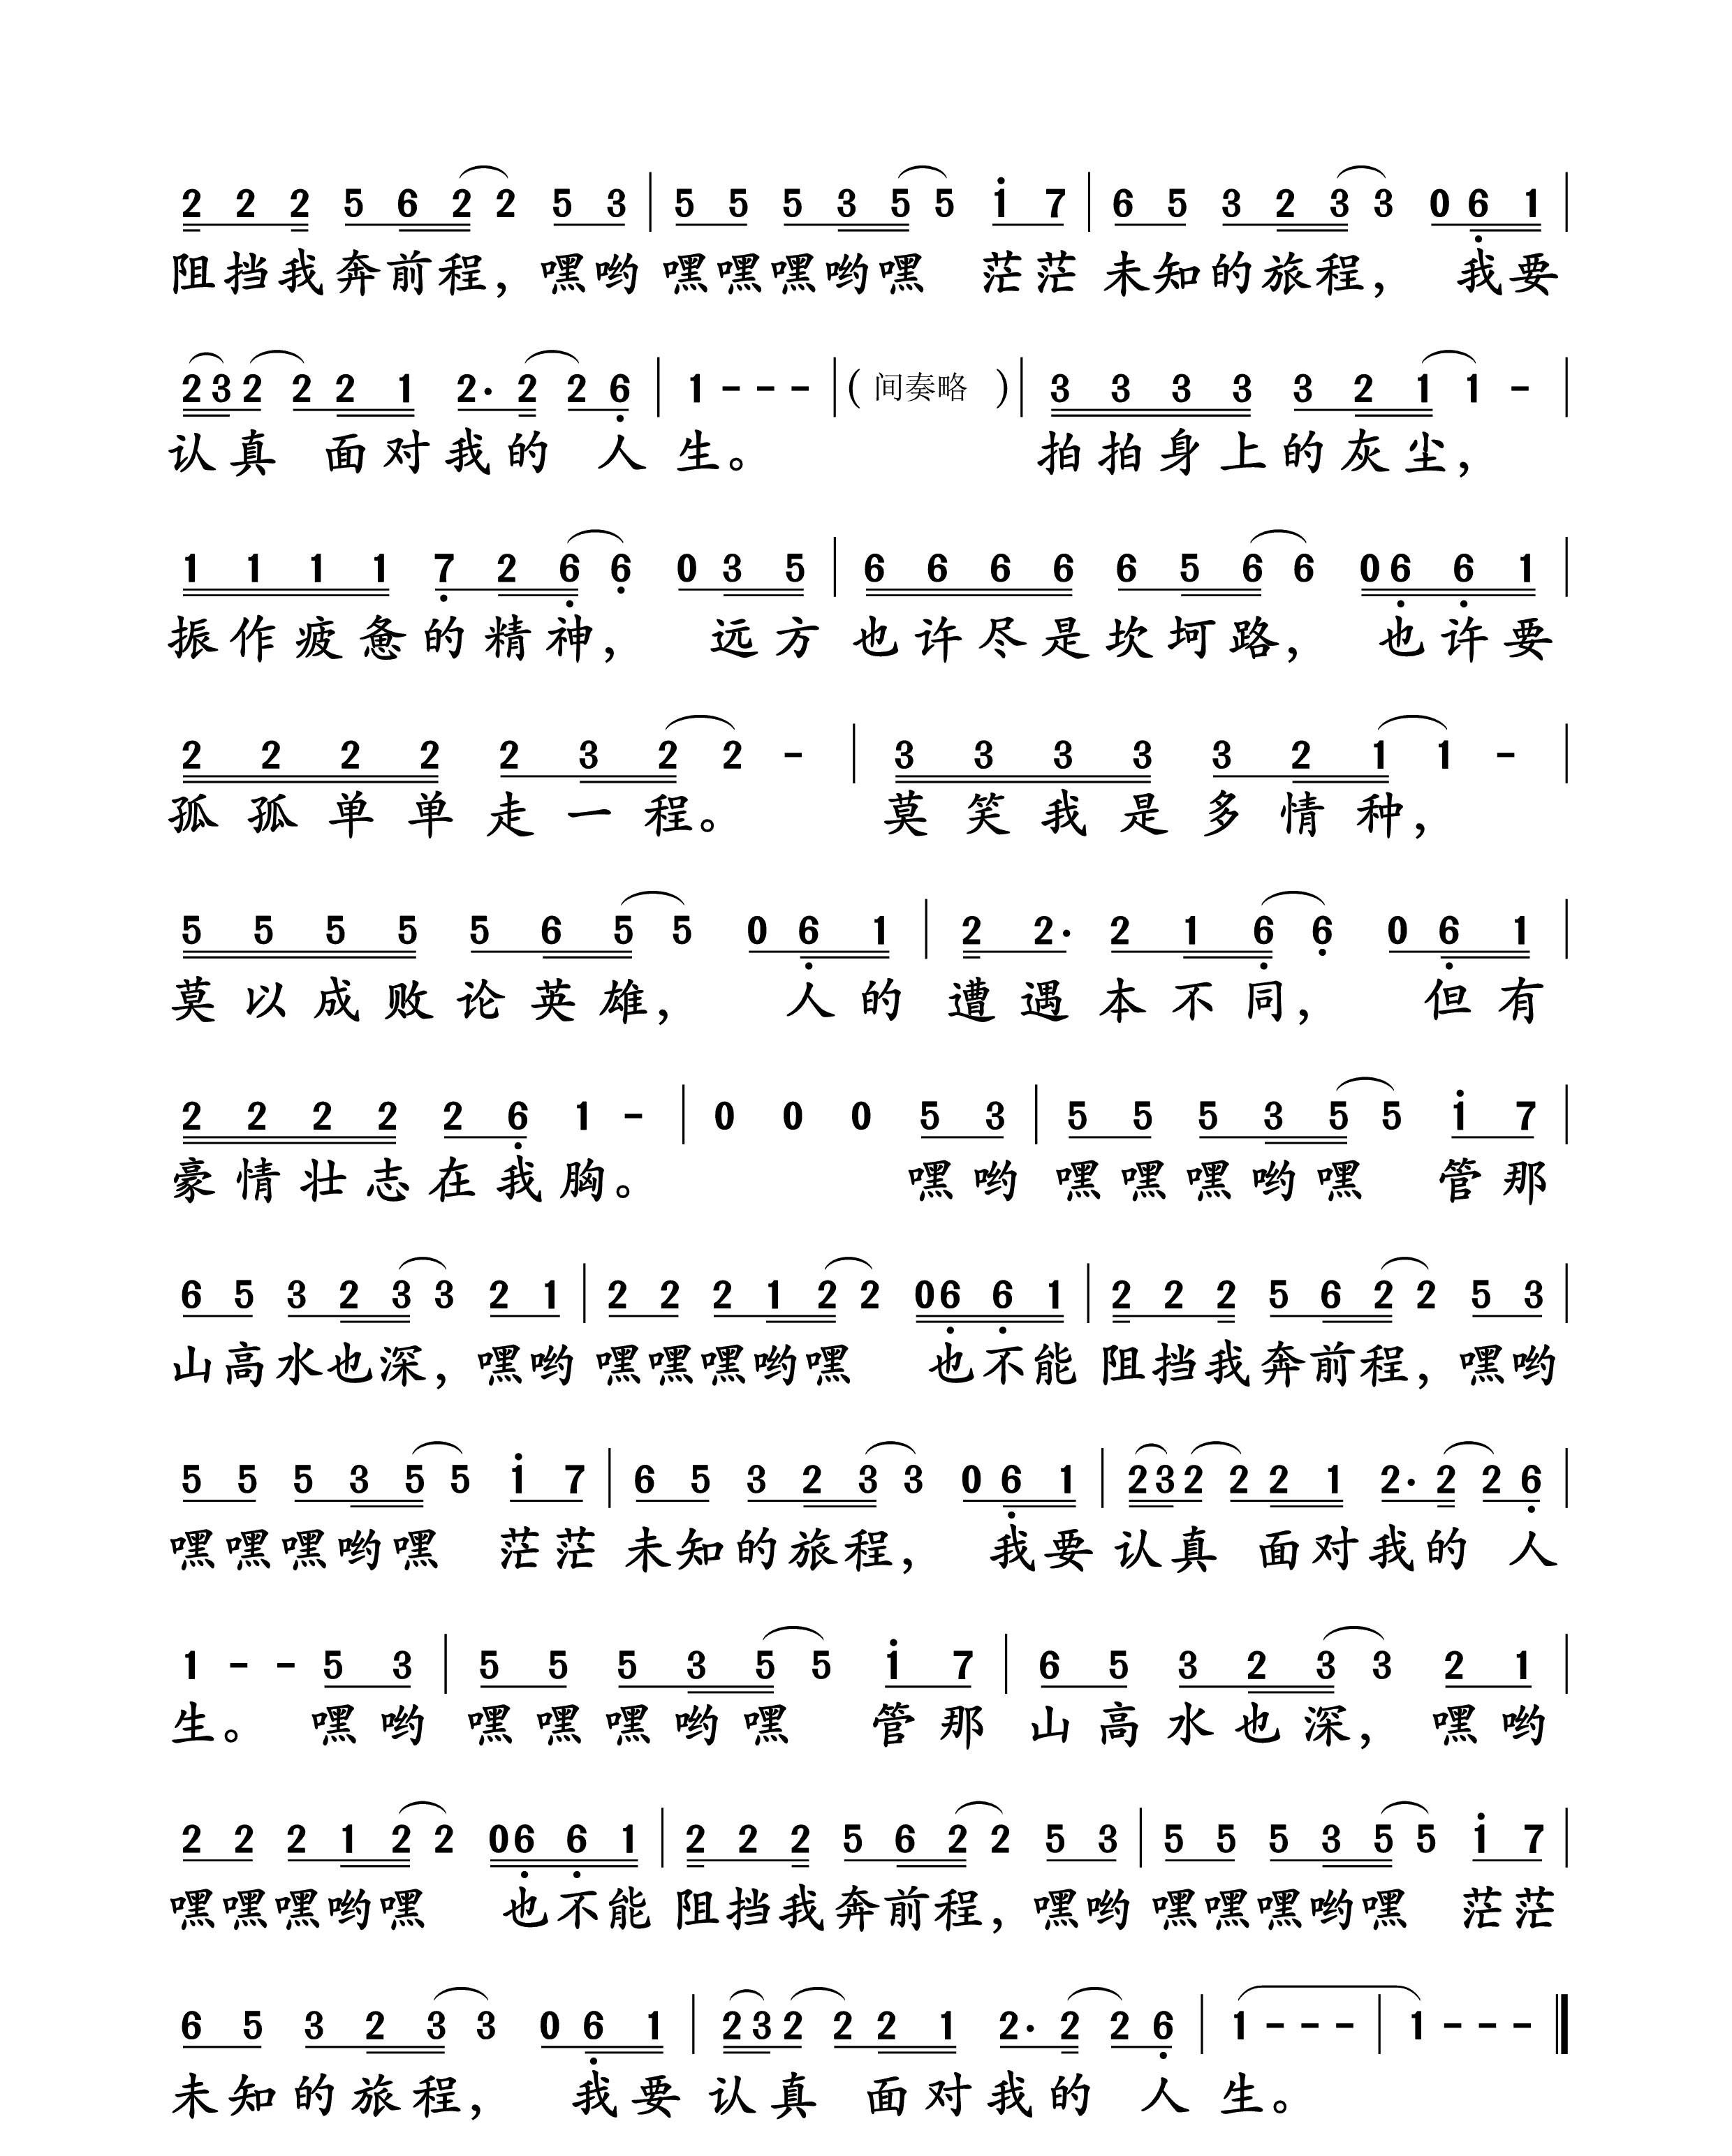 2 2 2 5 6 2 2 5 3 | 5 5 5 3 5 5 i 7 | 6 5 3 2 3 3 0 6 1 |
阻挡我奔前程，嘿哟 嘿嘿嘿哟嘿 茫茫 未知的旅程， 我要
2 3 2 2 2 1 2· 2 2 6 | 1 - - - | ( 间奏略 ) | 3 3 3 3 3 2 1 1 - |
认真 面对我的 人 生。 拍拍身上的灰尘，
1 1 1 1 7 2 6 6 0 3 5 | 6 6 6 6 6 5 6 6 0 6 6 1 |
振作疲惫的精神， 远方 也许尽是坎坷路， 也许要
2 2 2 2 2 3 2 2 - | 3 3 3 3 3 2 1 1 - |
孤孤单单走一程。 莫笑我是多情种，
5 5 5 5 5 6 5 5 0 6 1 | 2 2· 2 1 6 6 0 6 1 |
莫以成败论英雄， 人的 遭遇本不同， 但有
2 2 2 2 2 6 1 - | 0 0 0 5 3 | 5 5 5 3 5 5 i 7 |
豪情壮志在我胸。 嘿哟 嘿嘿嘿哟嘿 管那
6 5 3 2 3 3 2 1 | 2 2 2 1 2 2 0 6 6 1 | 2 2 2 5 6 2 2 5 3 |
山高水也深，嘿哟 嘿嘿嘿哟嘿 也不能 阻挡我奔前程，嘿哟
5 5 5 3 5 5 i 7 | 6 5 3 2 3 3 0 6 1 | 2 3 2 2 2 1 2· 2 2 6 |
嘿嘿嘿哟嘿 茫茫 未知的旅程， 我要 认真 面对我的 人
1 - - 5 3 | 5 5 5 3 5 5 i 7 | 6 5 3 2 3 3 2 1 |
生。 嘿哟 嘿嘿嘿哟嘿 管那 山高水也深， 嘿哟
2 2 2 1 2 2 0 6 6 1 | 2 2 2 5 6 2 2 5 3 | 5 5 5 3 5 5 i 7 |
嘿嘿嘿哟嘿 也不能 阻挡我奔前程，嘿哟 嘿嘿嘿哟嘿 茫茫
6 5 3 2 3 3 0 6 1 | 2 3 2 2 2 1 2· 2 2 6 | 1 - - - | 1 - - - ‖
未知的旅程， 我要 认真 面对我的 人 生。